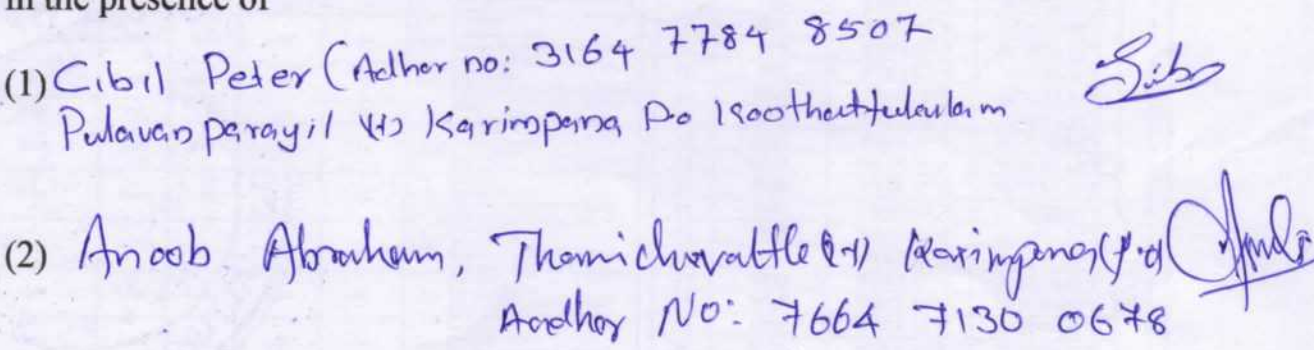 in the presence of
(1) Cibil Peter (Adhar no: 3164 7784 8507
Pulavanparayil (H) Karimpana Po Koothattukulam
(2) Anoob Abraham, Thamichuvattle (H) Karimpana (P.O)
Aadhar NO: 7664 7130 0678